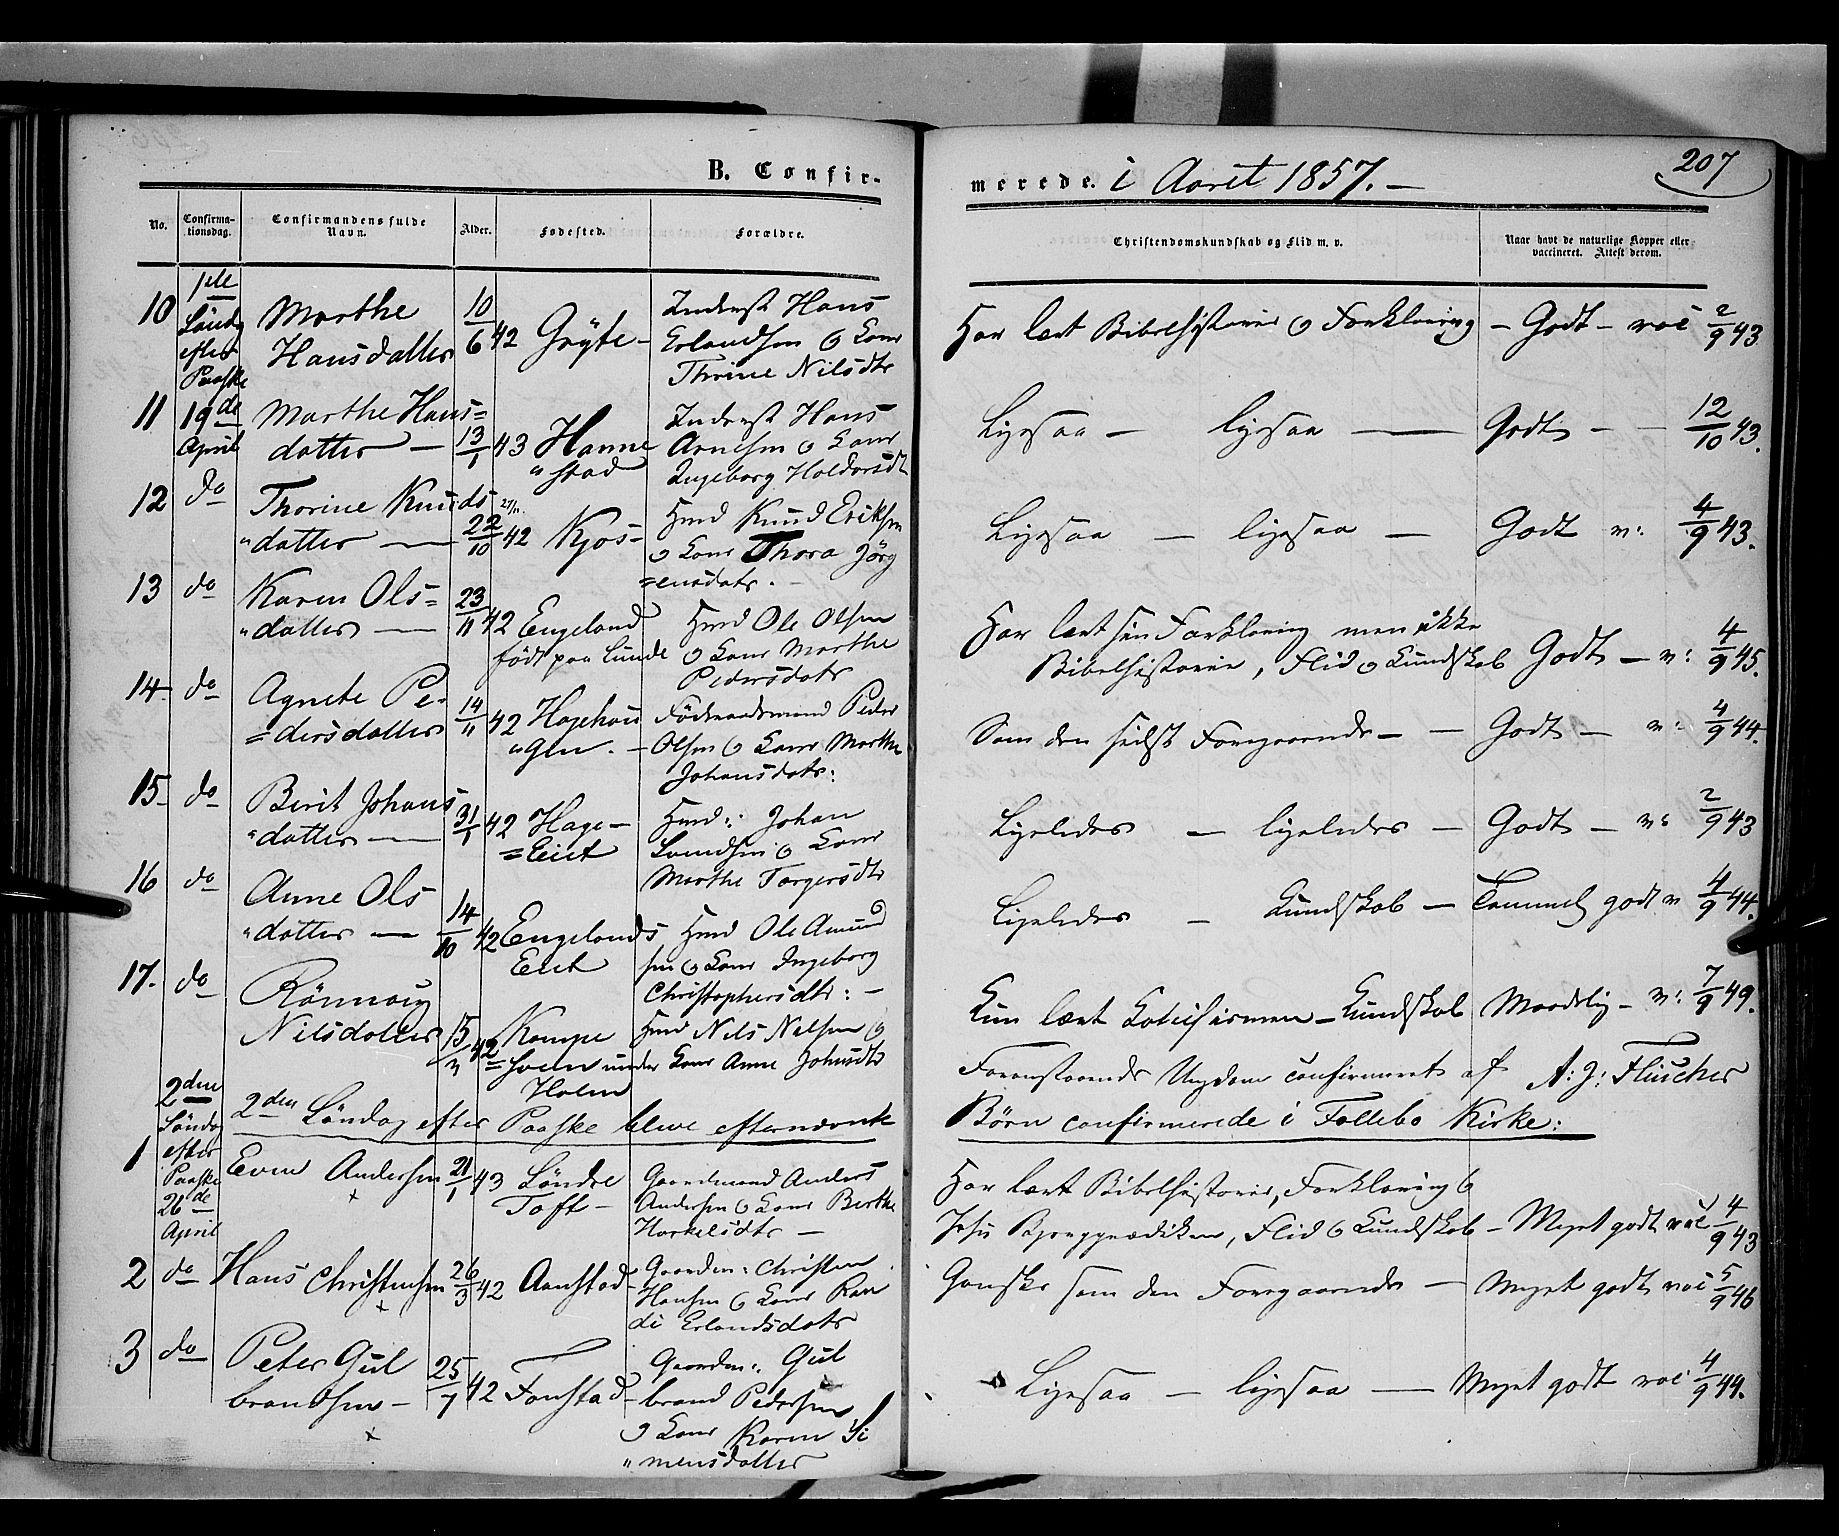 207
B. Confirmerede. i Aaret 1857. —
No.
Confirmationsdag.
Confirmandens fulde Navn.
Alder.
Fødested.
Forældre.
Christendomskundskab og Flid m. v.
Naar havt de naturlige Kopper eller vaccineret. Attest derom.
10
1ste
Søndag
efter
Paaske
Marthe
Hansdatter
10/6 42
Grÿte -
Inderst Hans
Erlandsen o Kone
Thrine Nilsdtr
Har lært Bibelhistorie o Forklaring - Godt - vac 2/9 43
11
19de
April
Marthe Hans=
datter —
13/1 43
Hanne
"stad
Inderst Hans
Arnesen o Kone
Ingeborg Haldorsdt
Ligesaa — ligesaa — Godt - - 12/10 43.
12
do
Thorine Knuds
"datter —
22/10 42
Kjos -
Hmd Knud Eriksen
o Kone Thora Jörg
=ensdatr. -
Ligesaa — ligesaa — Godt v: 4/9 43.
13
do
Karen Ols=
"datter —
23/11 42
Engeland
födt paa Lunde
Hmd Ole Olsen
o Kone Marthe
Pedersdatr
Har lært sin Forklaring men ikke
Bibelhistorie, Flid o Kundskab Godt - v: 4/9 45.
14
do
Agnete Pe-
=dersdatter
14/11 42
Hagehau
"gen. -
Föderaadsmand Peder
Olsen o Kone Marthe
Johansdatr:
Som den sidst Foregaaende - - Godt - v: 4/9 44.
15
do
Berit Johans
"datter —
31/1 42
Hage-
=Eiet
Hmd: Johan
o Kone
Marthe Torgersdtr
Ligeledes — ligeledes — Godt - v: 2/9 43
16
do
Anne Ols
"datter —
14/10 42
Engelands
Eiet
Hmd Ole Amund
sen o Kone Ingeborg
Christophersdtr: -
Ligeledes — Kundskab — Temmel godt v 4/9 44.
17.
do
Rönnoug
Nilsdatter
42
Kampe
=hven under
Holm
Hmd Nils Nilsen o
Kone Anne Johnsdtr
Kun lært Katechismen - Kundskab Maadelig - v: 7/9 49.
Foranstaaende Ungdom confirmeret af A: J: Fleischer
2den
Søndag
efter
Paaske
26de
April
2den Söndag efter Paaske bleve efternævnte
Börn confirmerede i Follebo Kirke:
1
Even Andersen
x
21/1 43
Söndre
Toft -
Gaardmand Anders
Andersen o Kone Berthe
Torkelsdtr —
Har lært Bibelhistorie, Forklaring o
Jesu Bjergprædiken, Flid o Kundskab - Meget godt vac 4/9 43
2
do
Hans Christensen
x
26/3 42
Aanstad
Gaardm: Christen
Hansen o Kone Ran
di Erlandsdatr
Ganske som den Foregaaende — Meget godt vac 5/9 46
3
do
Peter Gul
brandsen -
x
25/7 42
Fonstad -
Gaardm: Gul
brand Pedersen
o Kone Karen Si
"mensdatter
Ligesaa — ligesaa — Meget godt vac 4/9 44.